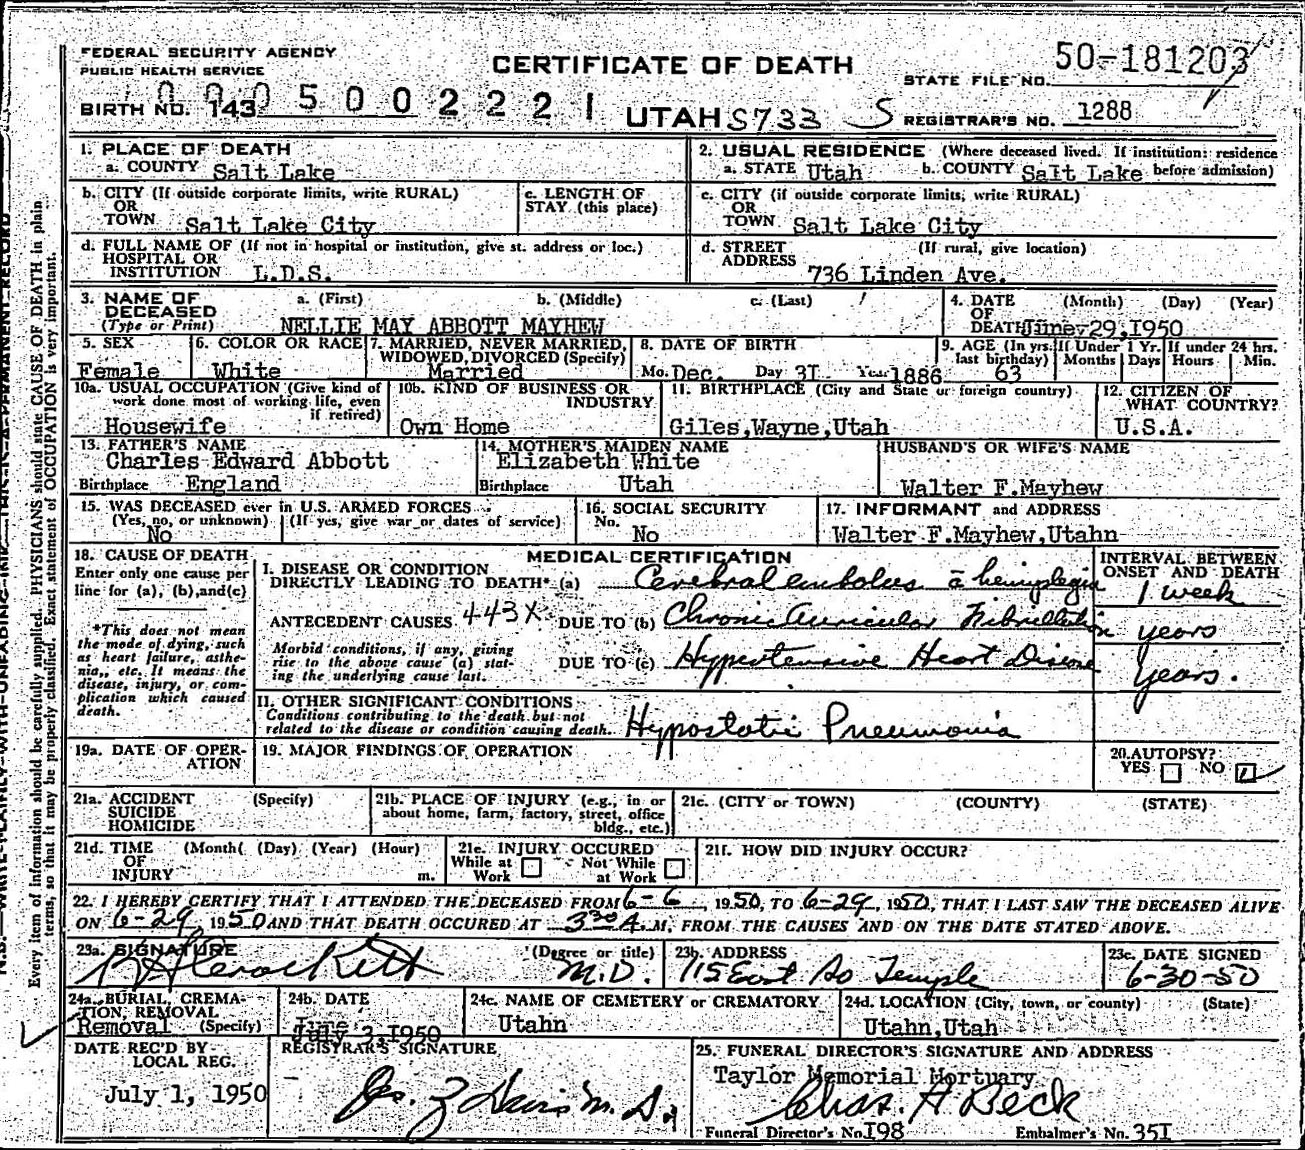 FEDERAL SECURITY AGENCY
PUBLIC HEALTH SERVICE
CERTIFICATE OF DEATH
STATE FILE NO. 50-181203
BIRTH NO. 143 000500222 1
UTAH S733 S
REGISTRAR'S NO. 1288
1. PLACE OF DEATH
a. COUNTY Salt Lake
2. USUAL RESIDENCE (Where deceased lived. If institution: residence before admission)
a. STATE Utah b. COUNTY Salt Lake
b. CITY (If outside corporate limits, write RURAL)
OR
TOWN Salt Lake City
c. LENGTH OF
STAY (this place)
c. CITY (if outside corporate limits, write RURAL)
OR
TOWN Salt Lake City
d. FULL NAME OF (If not in hospital or institution, give st. address or loc.)
HOSPITAL OR
INSTITUTION L.D.S.
d. STREET (If rural, give location)
ADDRESS
736 Linden Ave.
3. NAME OF a. (First) b. (Middle) c. (Last)
DECEASED
(Type or Print) NELLIE MAY ABBOTT MAYHEW
4. DATE (Month) (Day) (Year)
OF
DEATH June 29,1950
5. SEX
Female
6. COLOR OR RACE
White
7. MARRIED, NEVER MARRIED,
WIDOWED, DIVORCED (Specify)
Married
8. DATE OF BIRTH
Mo. Dec. Day 3I Year 1886
9. AGE (In yrs. last birthday)
63
If Under 1 Yr.
Months Days
If under 24 hrs.
Hours Min.
10a. USUAL OCCUPATION (Give kind of
work done most of working life, even
if retired)
Housewife
10b. KIND OF BUSINESS OR
INDUSTRY
Own Home
11. BIRTHPLACE (City and State or foreign country)
Giles,Wayne,Utah
12. CITIZEN OF
WHAT COUNTRY?
U.S.A.
13. FATHER'S NAME
Charles Edward Abbott
Birthplace England
14. MOTHER'S MAIDEN NAME
Elizabeth White
Birthplace Utah
HUSBAND'S OR WIFE'S NAME
Walter F.Mayhew
15. WAS DECEASED ever in U.S. ARMED FORCES
(Yes, no, or unknown) (If yes, give war or dates of service)
No
16. SOCIAL SECURITY
No.
No
17. INFORMANT and ADDRESS
Walter F.Mayhew,Utahn
18. CAUSE OF DEATH
Enter only one cause per
line for (a), (b), and (c)
*This does not mean
the mode of dying, such
as heart failure, asthe-
nia,, etc. It means the
disease, injury, or com-
plication which caused
death.
MEDICAL CERTIFICATION
I. DISEASE OR CONDITION
DIRECTLY LEADING TO DEATH* (a) Cerebral embolus ā hemiplegia
ANTECEDENT CAUSES 443X DUE TO (b) Chronic Auricular Fibrillation
Morbid conditions, if any, giving
rise to the above cause (a) stat-
ing the underlying cause last.
DUE TO (c) Hypertensive Heart Disease
INTERVAL BETWEEN
ONSET AND DEATH
1 week
years
years.
II. OTHER SIGNIFICANT CONDITIONS
Conditions contributing to the death but not
related to the disease or condition causing death.
Hypostatic Pneumonia
19a. DATE OF OPER-
ATION
19. MAJOR FINDINGS OF OPERATION
20. AUTOPSY?
YES NO
21a. ACCIDENT (Specify)
SUICIDE
HOMICIDE
21b. PLACE OF INJURY (e.g., in or
about home, farm, factory, street, office
bldg., etc.)
21c. (CITY or TOWN) (COUNTY) (STATE)
21d. TIME (Month( (Day) (Year) (Hour)
OF
INJURY m.
21e. INJURY OCCURED
While at Work Not While at Work
21f. HOW DID INJURY OCCUR?
22. I HEREBY CERTIFY THAT I ATTENDED THE DECEASED FROM 6-6, 1950, TO 6-29, 1950, THAT I LAST SAW THE DECEASED ALIVE
ON 6-29 1950 AND THAT DEATH OCCURED AT 3:30 A.M, FROM THE CAUSES AND ON THE DATE STATED ABOVE.
23a. SIGNATURE (Degree or title)
Crockett M.D.
23b. ADDRESS
115 East So Temple
23c. DATE SIGNED
6-30-50
24a. BURIAL, CREMA-
TION, REMOVAL
Removal (Specify)
24b. DATE
July 3,I950
24c. NAME OF CEMETERY or CREMATORY
Utahn
24d. LOCATION (City, town, or county) (State)
Utahn,Utah
DATE REC'D BY
LOCAL REG.
July 1, 1950
REGISTRAR'S SIGNATURE
25. FUNERAL DIRECTOR'S SIGNATURE AND ADDRESS
Taylor Memorial Mortuary
Chas. A Beck
Funeral Director's No. I98 Embalmer's No. 35I
Every item of information should be carefully supplied. PHYSICIANS should state CAUSE OF DEATH in plain
terms, so that it may be properly classified. Exact statement of OCCUPATION is very important.